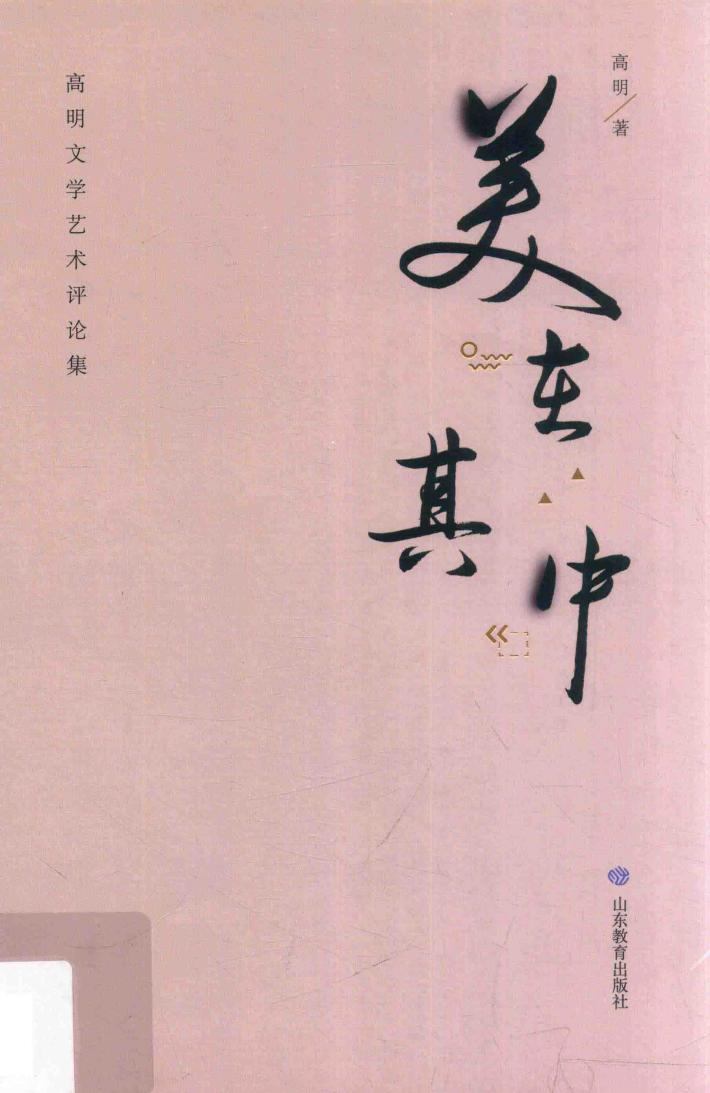 高明/著
美在其中
高明文学艺术评论集
山东教育出版社